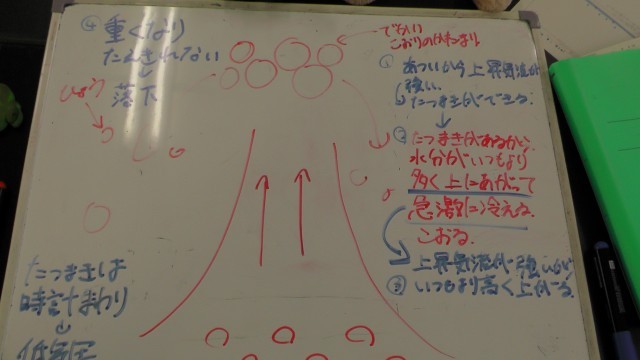 ④ 重くなり
たえきれない
↓
落下
ひょう
でかい
こおりのかたまり
① あついから上昇気流が
強い。
↳たつまきができる。
↓
② たつまきがあるから、
水分がいつもより
多く上にあがって
急激に冷える。
こおる。
③ 上昇気流が強いが
いつもより高く上がる。
たつまきは
時計まわり
↓
低気圧